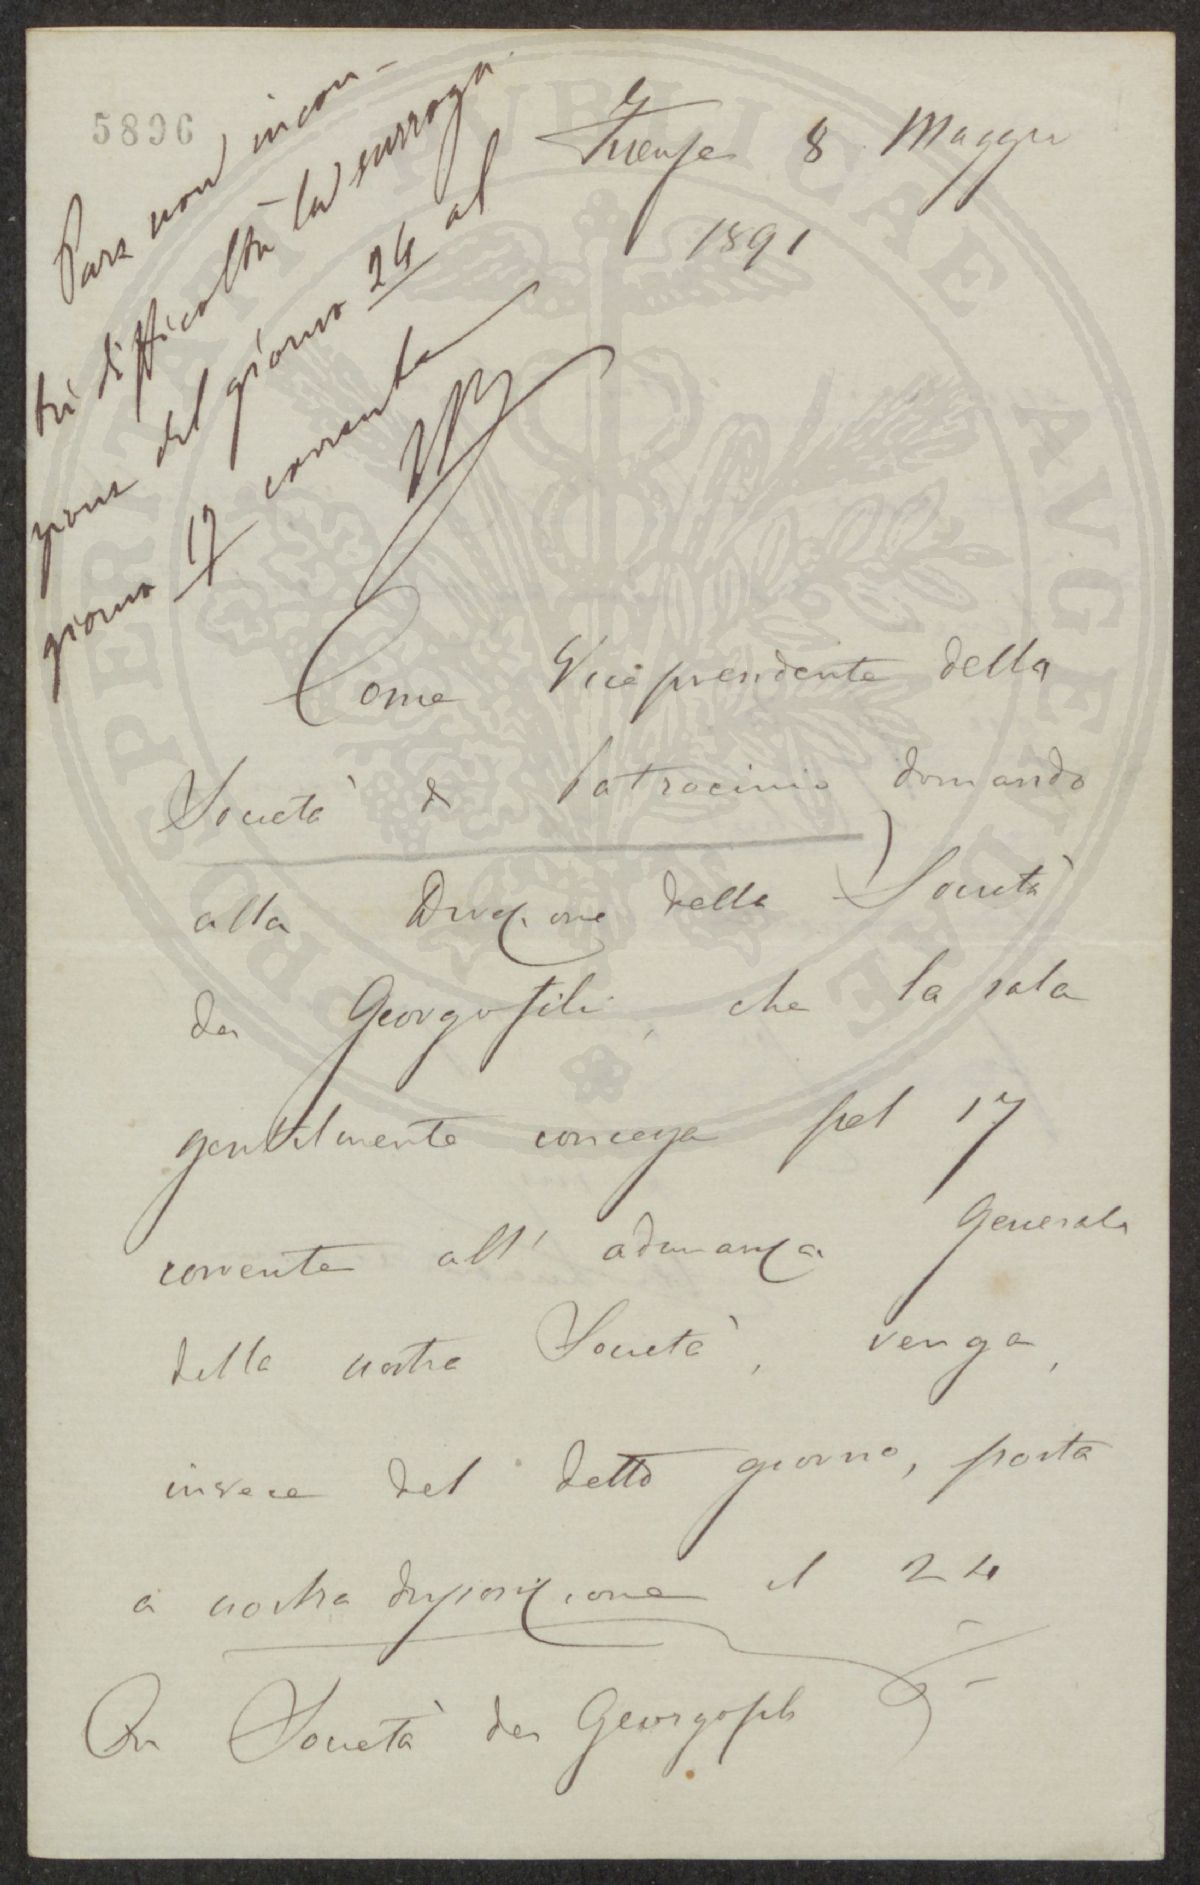 5896
Firenze 8 Maggio
1891
Pare non incon-
tri difficoltà la surroga
zione del giorno 24 al
giorno 17 corrente
Come Vicepresidente della
Società di Patrocinio domando
alla Direzione della Società
dei Georgofili, che la sala
gentilmente concessa pel 17
corrente all'adunanza Generale
della nostra Società, venga,
invece del detto giorno, posta
a nostra disposizione il 24
Società dei Georgophili
PROSPERITATI PVBLICAE AVGENDAE